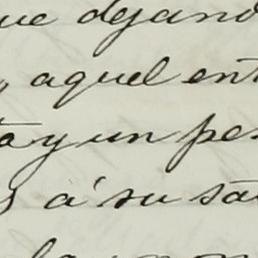 ue dejand
aquel ent
y un pe
s á su sa